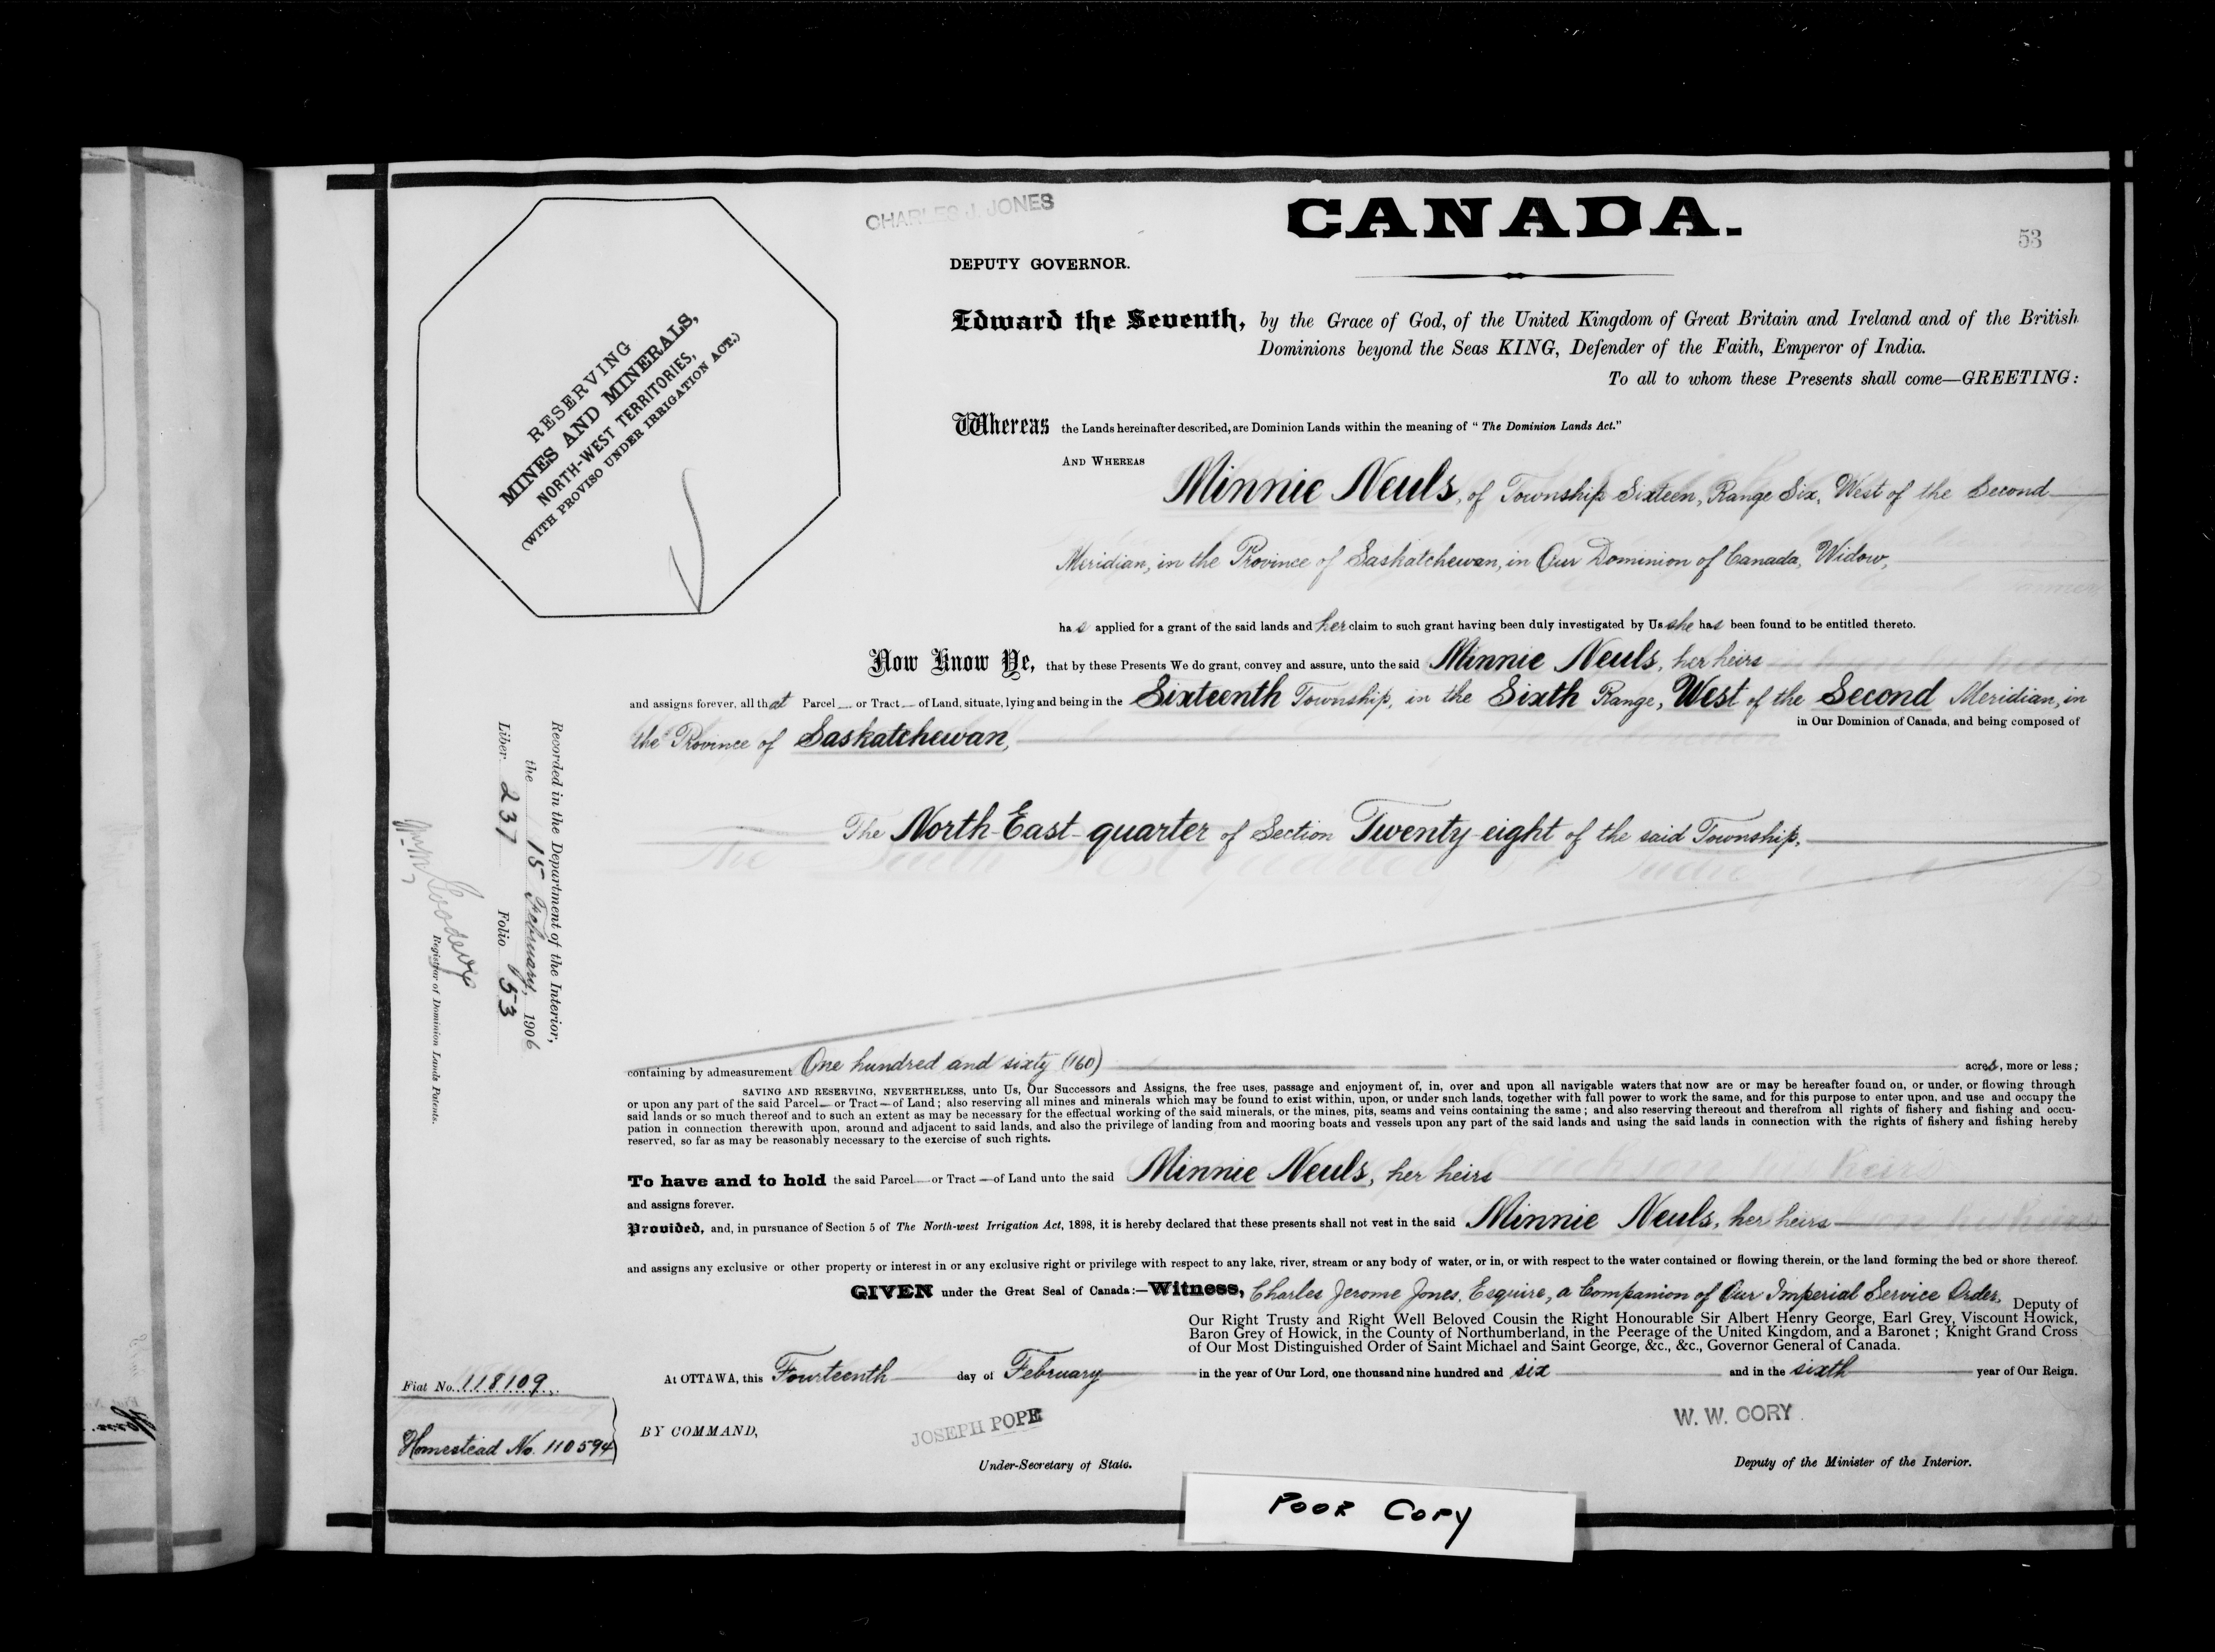 CHARLES J. JONES
CANADA.
53
DEPUTY GOVERNOR.
RESERVING
MINES AND MINERALS,
NORTH-WEST TERRITORIES,
(WITH PROVISO UNDER IRRIGATION ACT.)
Edward the Seventh, by the Grace of God, of the United Kingdom of Great Britain and Ireland and of the British
Dominions beyond the Seas KING, Defender of the Faith, Emperor of India.
To all to whom these Presents shall come—GREETING:
Whereas the Lands hereinafter described, are Dominion Lands within the meaning of "The Dominion Lands Act."
AND WHEREAS
Minnie Neuls, of Township Sixteen, Range Six, West of the Second
Meridian, in the Province of Saskatchewan, in Our Dominion of Canada, Widow,
has applied for a grant of the said lands and her claim to such grant having been duly investigated by Us she has been found to be entitled thereto.
Now Know Ye, that by these Presents We do grant, convey and assure, unto the said Minnie Neuls, her heirs
and assigns forever, all that Parcel or Tract of Land, situate, lying and being in the Sixteenth Township, in the Sixth Range, West of the Second Meridian, in
the Province of Saskatchewan, in Our Dominion of Canada, and being composed of
The North-East-quarter of Section Twenty-eight of the said Township.
containing by admeasurement One hundred and sixty (160) acres, more or less;
SAVING AND RESERVING, NEVERTHELESS, unto Us, Our Successors and Assigns, the free uses, passage and enjoyment of, in, over and upon all navigable waters that now are or may be hereafter found on, or under, or flowing through
or upon any part of the said Parcel—or Tract—of Land; also reserving all mines and minerals which may be found to exist within, upon, or under such lands, together with full power to work the same, and for this purpose to enter upon, and use and occupy the
said lands or so much thereof and to such an extent as may be necessary for the effectual working of the said minerals, or the mines, pits, seams and veins containing the same; and also reserving thereout and therefrom all rights of fishery and fishing and occu-
pation in connection therewith upon, around and adjacent to said lands, and also the privilege of landing from and mooring boats and vessels upon any part of the said lands and using the said lands in connection with the rights of fishery and fishing hereby
reserved, so far as may be reasonably necessary to the exercise of such rights.
To have and to hold the said Parcel—or Tract—of Land unto the said Minnie Neuls, her heirs
and assigns forever.
Provided, and, in pursuance of Section 5 of The North-west Irrigation Act, 1898, it is hereby declared that these presents shall not vest in the said Minnie Neuls, her heirs
and assigns any exclusive or other property or interest in or any exclusive right or privilege with respect to any lake, river, stream or any body of water, or in, or with respect to the water contained or flowing therein, or the land forming the bed or shore thereof.
GIVEN under the Great Seal of Canada:—Witness, Charles Jerome Jones, Esquire, a Companion of Our Imperial Service Order, Deputy of
Our Right Trusty and Right Well Beloved Cousin the Right Honourable Sir Albert Henry George, Earl Grey, Viscount Howick,
Baron Grey of Howick, in the County of Northumberland, in the Peerage of the United Kingdom, and a Baronet; Knight Grand Cross
of Our Most Distinguished Order of Saint Michael and Saint George, &c., &c., Governor General of Canada.
At OTTAWA, this Fourteenth day of February in the year of Our Lord, one thousand nine hundred and six and in the sixth year of Our Reign.
BY COMMAND,
JOSEPH POPE
Under-Secretary of State.
W. W. CORY
Deputy of the Minister of the Interior.
Recorded in the Department of the Interior,
the 15 February, 1906
Liber 237 Folio 53
Registrar of Dominion Lands Patents.
Fiat No. 118109
Homestead No. 110594
POOR COPY